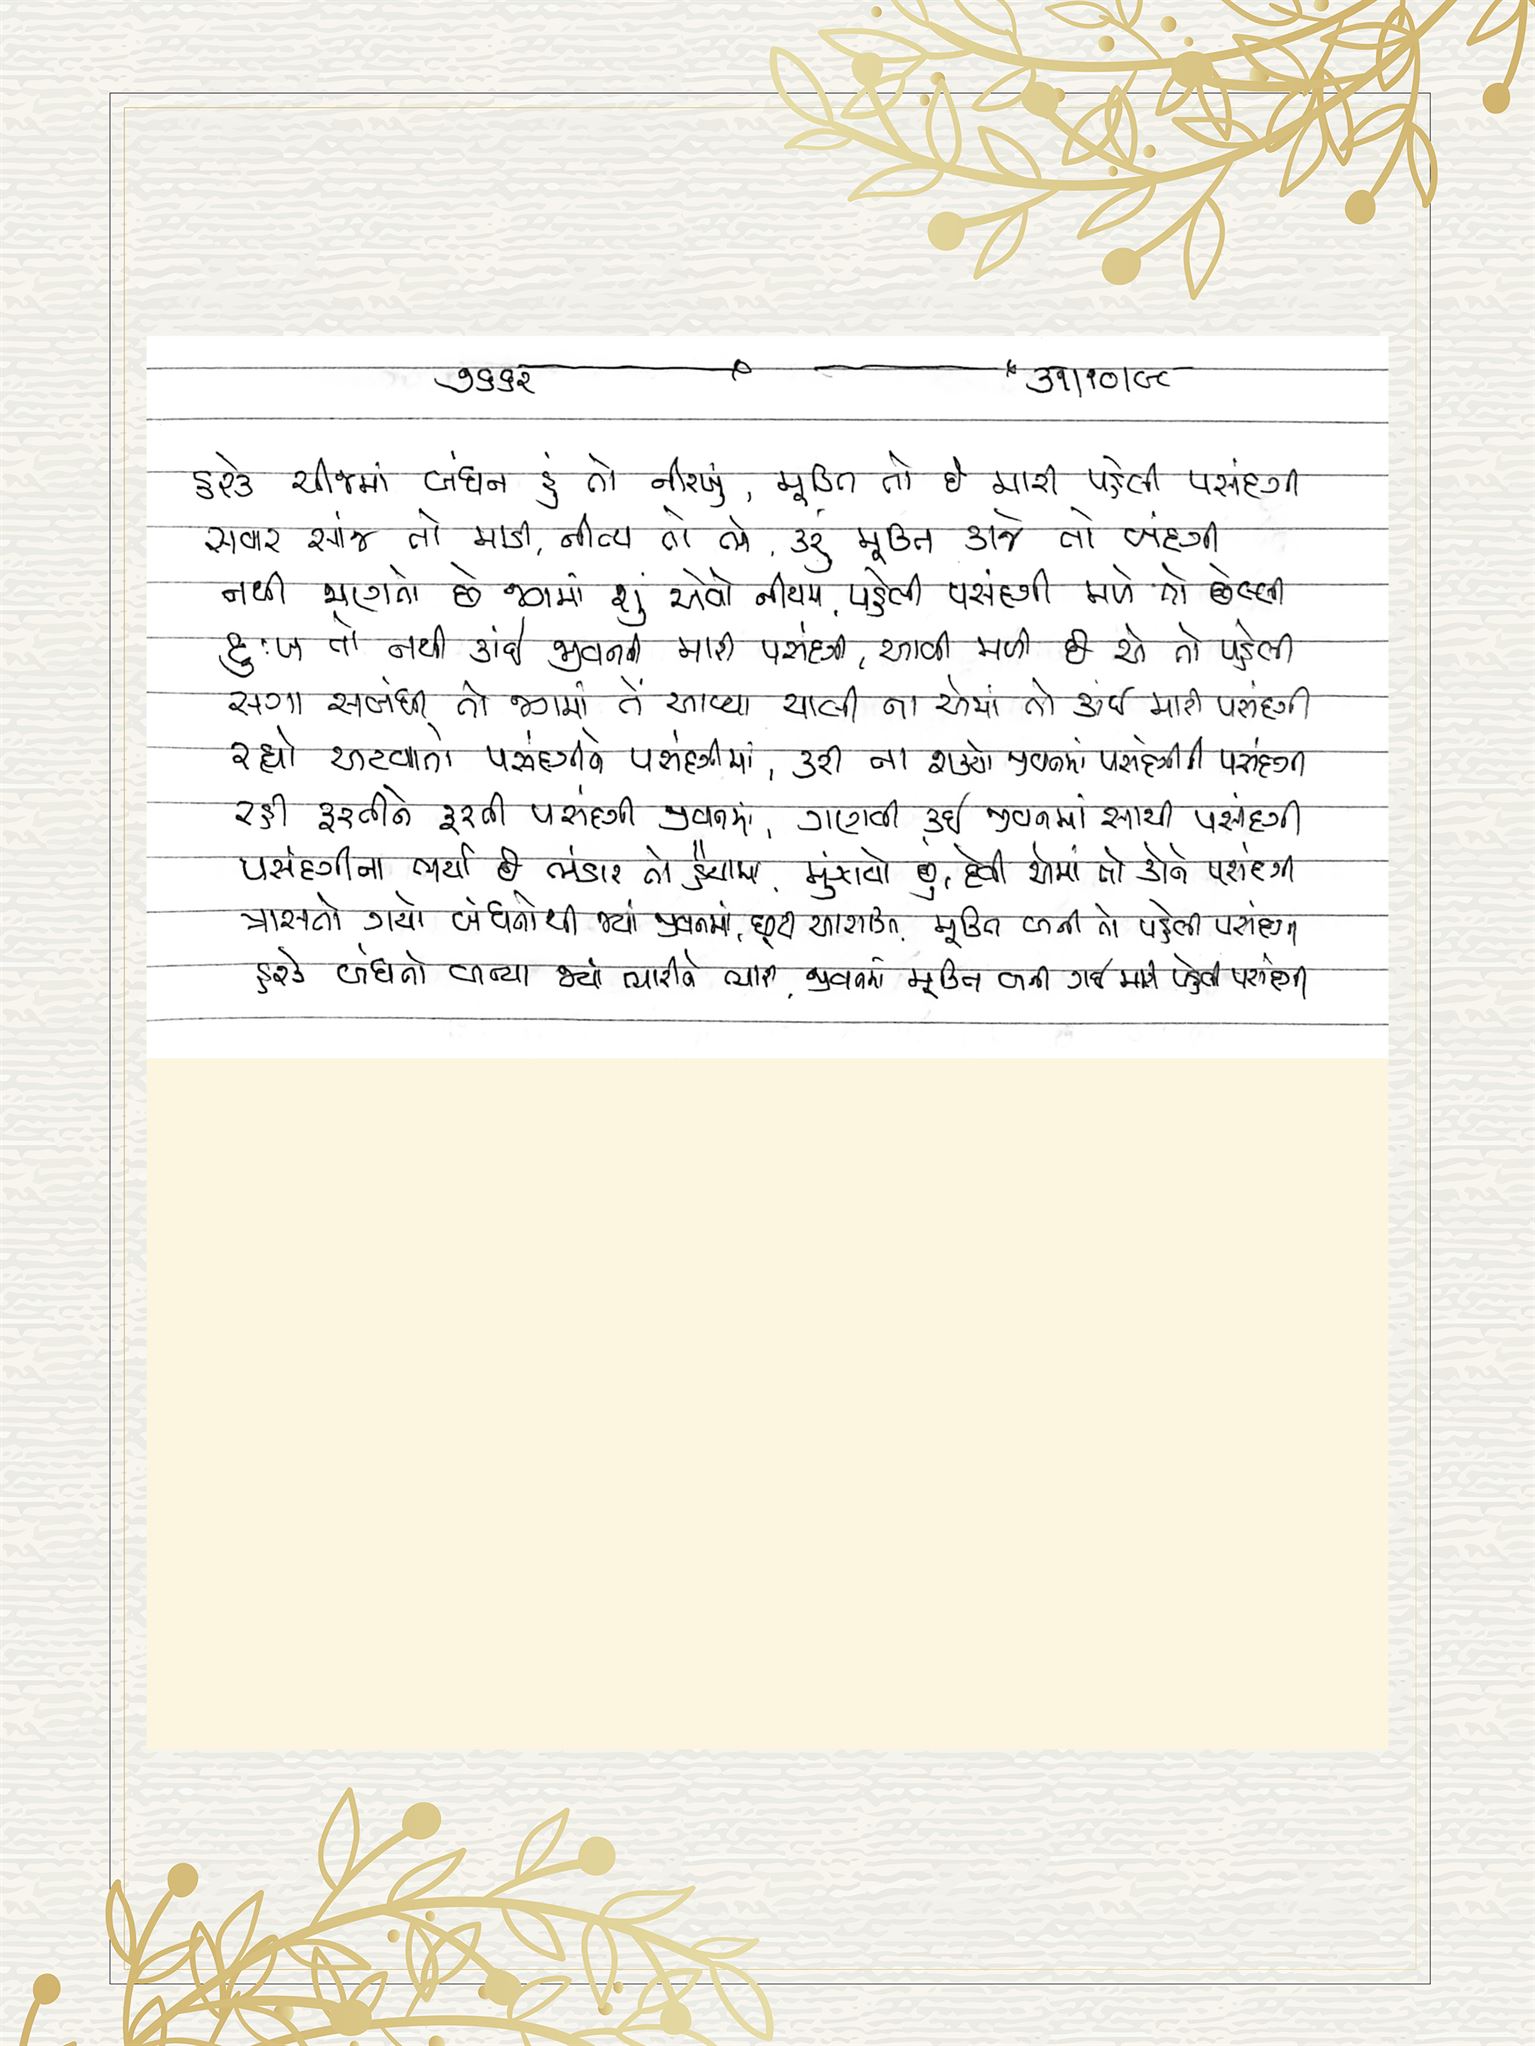 ૭૬૬૨ ૩૧/૧૦/૯૮
હરેક ચીજમાં બંધન હું તો નીરખું, મૂક્તિ તો છે મારી પહેલી પસંદગી
સવાર સાંજ તો માડી, નીત્ય તો તને, કરું મૂક્તિ કાજે તો બંદગી
નથી જાણતો છે જગમાં શું એવો નીયમ, પહેલી પસંદગી મળે તો છેલ્લી
દુઃખ તો નથી કાંઈ જીવનની મારી પસંદગી, આવી મળી છે એ તો પહેલી
સગા સબંધી તો જગમાં તેં આપ્યા ચાલી ના એમાં તો કાંઈ મારી પસંદગી
રહ્યો અટવાતો પસંદગીને પસંદગીમાં, કરી ના શક્યો જીવનમાં પસંદગીની પસંદગી
રહી ફરતીને ફરતી પસંદગી જીવનમાં, ગણવી કઈ જીવનમાં સાચી પસંદગી
પસંદગીના ભર્યા છે ભંડાર તો હૈયામાં, મુંઝાવો છું, દેવી એમાં તો કોને પસંદગી
ત્રાસતો ગયો બંધનોથી જ્યાં જીવનમાં, છૂટી આશક્તિ, મૂક્તિ બની તો પહેલી પસંદગી
હરેક બંધનો બન્યા જ્યાં ત્યારીને ત્યારી, જીવનમાં મૂક્તિ બની ગઈ મારી પહેલી પસંદગી